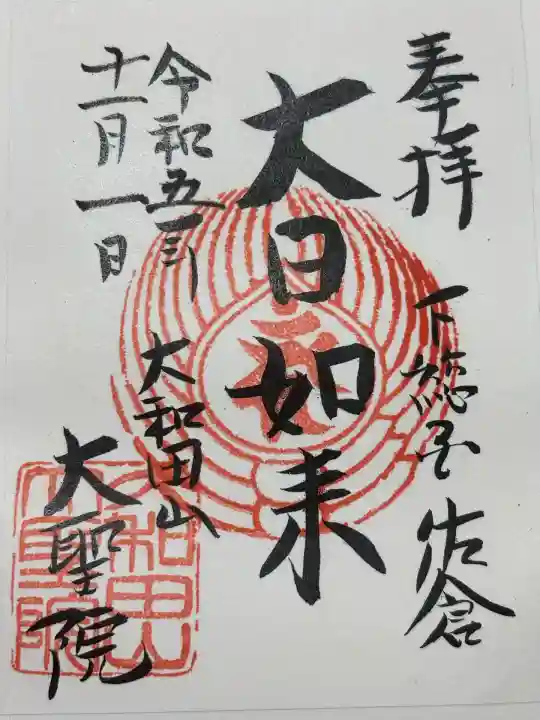 奉拝
下総国 佐倉
大日如来
令和五年
十一月一日
大和田山
大聖院